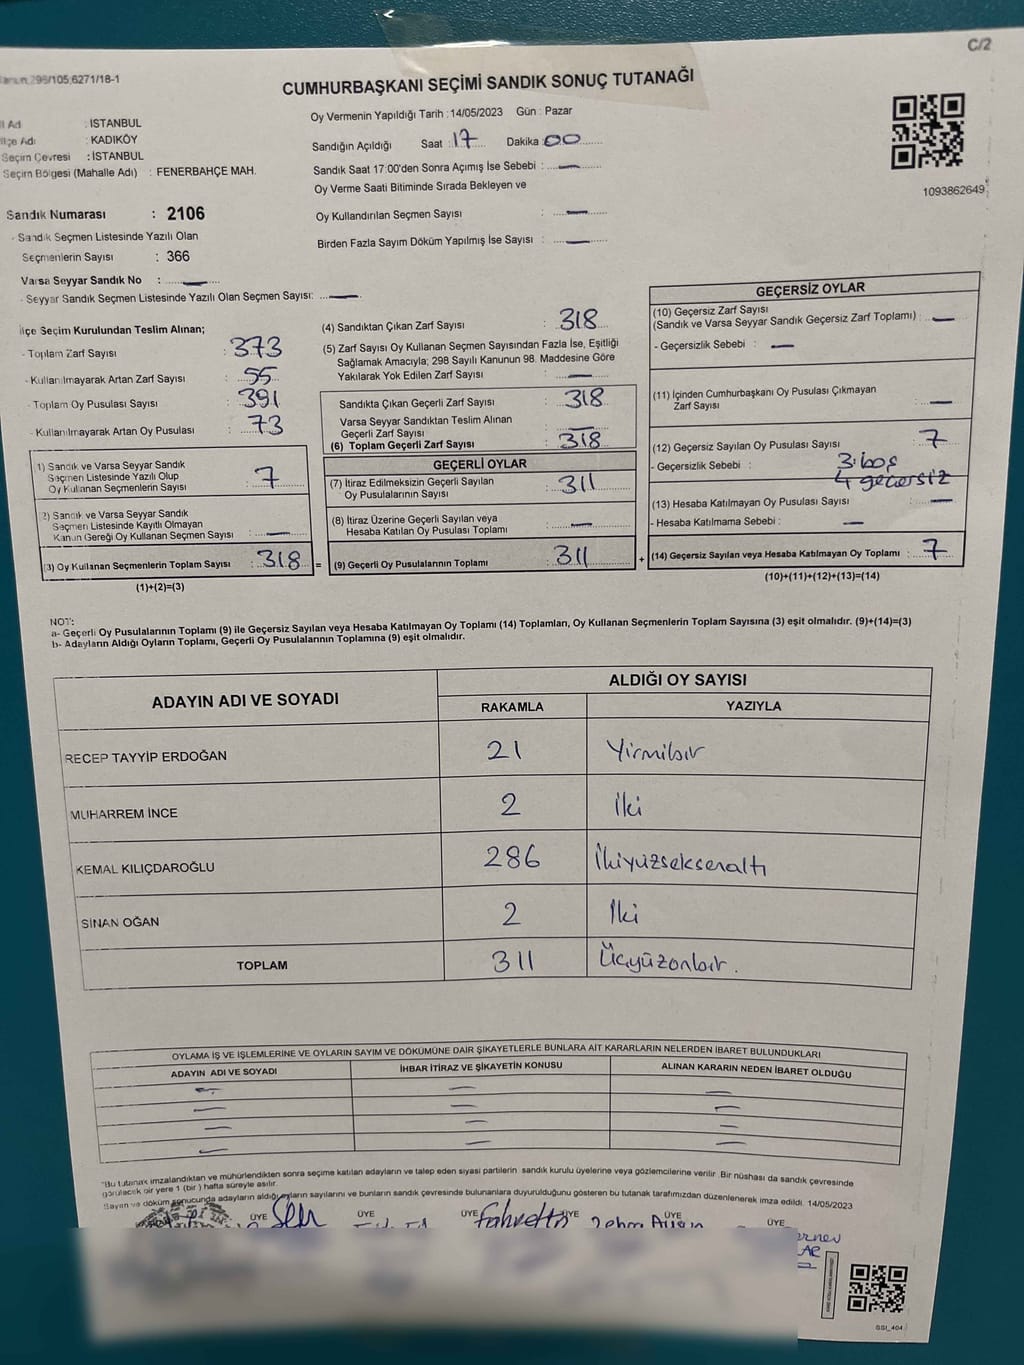 C/2
298/105,6271/18-1
CUMHURBAŞKANI SEÇİMİ SANDIK SONUÇ TUTANAĞI
İl Adı : İSTANBUL
İlçe Adı : KADIKÖY
Seçim Çevresi : İSTANBUL
Seçim Bölgesi (Mahalle Adı) : FENERBAHÇE MAH.
Sandık Numarası : 2106
- Sandık Seçmen Listesinde Yazılı Olan
Seçmenlerin Sayısı : 366
Varsa Seyyar Sandık No : —
- Seyyar Sandık Seçmen Listesinde Yazılı Olan Seçmen Sayısı: —
Oy Vermenin Yapıldığı Tarih : 14/05/2023 Gün : Pazar
Sandığın Açıldığı Saat : 17 Dakika : 00
Sandık Saat 17:00'den Sonra Açımış İse Sebebi : —
Oy Verme Saati Bitiminde Sırada Bekleyen ve
Oy Kullandırılan Seçmen Sayısı : —
Birden Fazla Sayım Döküm Yapılmış İse Sayısı : —
1093862649
İlçe Seçim Kurulundan Teslim Alınan;
- Toplam Zarf Sayısı : 373
- Kullanılmayarak Artan Zarf Sayısı : 55
- Toplam Oy Pusulası Sayısı : 391
- Kullanılmayarak Artan Oy Pusulası : 73
1) Sandık ve Varsa Seyyar Sandık
Seçmen Listesinde Yazılı Olup
Oy Kullanan Seçmenlerin Sayısı : 7
2) Sandık ve Varsa Seyyar Sandık
Seçmen Listesinde Kayıtlı Olmayan
Kanun Gereği Oy Kullanan Seçmen Sayısı : —
(3) Oy Kullanan Seçmenlerin Toplam Sayısı : 318 =
(1)+(2)=(3)
(4) Sandıktan Çıkan Zarf Sayısı : 318
(5) Zarf Sayısı Oy Kullanan Seçmen Sayısından Fazla İse, Eşitliği
Sağlamak Amacıyla; 298 Sayılı Kanunun 98. Maddesine Göre
Yakılarak Yok Edilen Zarf Sayısı : —
Sandıkta Çıkan Geçerli Zarf Sayısı : 318
Varsa Seyyar Sandıktan Teslim Alınan
Geçerli Zarf Sayısı : —
(6) Toplam Geçerli Zarf Sayısı : 318
GEÇERLİ OYLAR
(7) İtiraz Edilmeksizin Geçerli Sayılan
Oy Pusulalarının Sayısı : 311
(8) İtiraz Üzerine Geçerli Sayılan veya
Hesaba Katılan Oy Pusulası Toplamı : —
(9) Geçerli Oy Pusulalarının Toplamı : 311 +
GEÇERSİZ OYLAR
(10) Geçersiz Zarf Sayısı
(Sandık ve Varsa Seyyar Sandık Geçersiz Zarf Toplamı) : —
- Geçersizlik Sebebi : —
(11) İçinden Cumhurbaşkanı Oy Pusulası Çıkmayan
Zarf Sayısı : —
(12) Geçersiz Sayılan Oy Pusulası Sayısı : 7
- Geçersizlik Sebebi : 3 boş
4 geçersiz
(13) Hesaba Katılmayan Oy Pusulası Sayısı : —
- Hesaba Katılmama Sebebi : —
(14) Geçersiz Sayılan veya Hesaba Katılmayan Oy Toplamı : 7
(10)+(11)+(12)+(13)=(14)
NOT:
a- Geçerli Oy Pusulalarının Toplamı (9) ile Geçersiz Sayılan veya Hesaba Katılmayan Oy Toplamı (14) Toplamları, Oy Kullanan Seçmenlerin Toplam Sayısına (3) eşit olmalıdır. (9)+(14)=(3)
b- Adayların Aldığı Oyların Toplamı, Geçerli Oy Pusulalarının Toplamına (9) eşit olmalıdır.
ADAYIN ADI VE SOYADI
ALDIĞI OY SAYISI
RAKAMLA YAZIYLA
RECEP TAYYİP ERDOĞAN 21 Yirmibir
MUHARREM İNCE 2 İki
KEMAL KILIÇDAROĞLU 286 İkiyüzseksenaltı
SİNAN OĞAN 2 İki
TOPLAM 311 Üçyüzonbir.
OYLAMA İŞ VE İŞLEMLERİNE VE OYLARIN SAYIM VE DÖKÜMÜNE DAİR ŞİKAYETLERLE BUNLARA AİT KARARLARIN NELERDEN İBARET BULUNDUKLARI
ADAYIN ADI VE SOYADI İHBAR İTİRAZ VE ŞİKAYETİN KONUSU ALINAN KARARIN NEDEN İBARET OLDUĞU
— — —
— — —
— — —
— — —
"Bu tutanak imzalandıktan ve mühürlendikten sonra seçime katılan adayların ve talep eden siyasi partilerin sandık kurulu üyelerine veya gözlemcilerine verilir. Bir nüshası da sandık çevresinde
görülecek bir yere 1 (bir) hafta süreyle asılır.
Sayım ve döküm sonucunda adayların aldığı oyların sayılarını ve bunların sandık çevresinde bulunanlara duyurulduğunu gösteren bu tutanak tarafımızdan düzenlenerek imza edildi. 14/05/2023
ÜYE ÜYE ÜYE Fahrettin ÜYE ÜYE ÜYE
SSI_404